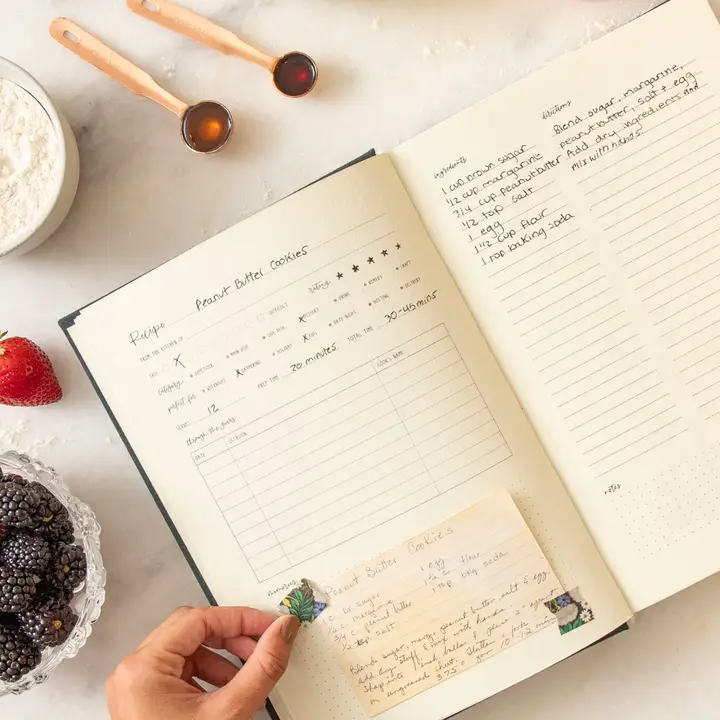 Recipe Peanut Butter Cookies
FROM THE KITCHEN OF
rating ★ ★ ★ ★ ★
EASY X DIFFICULT
category APPETIZER MAIN DISH SIDE DISH X DESSERT DRINK
perfect for WEEKNIGHT X GATHERING HOLIDAY X KIDS DATE NIGHT
SERVES 12 PREP TIME 20 minutes TOTAL TIME 30-45 mins
through the years
DATE OCCASION COOK'S NAME
memories
Peanut Butter Cookies
1 c br. sugar
1/2 c margarine
3/4 c peanut butter
1/2 tsp salt
1 egg
1 1/2 c flour
1 tsp bkg soda
Blend sugar, marg, peanut butter, salt & egg.
Add dry stuff & mix with hands.
Shape into 1 inch balls & place 2" apart
on ungreased sheet. Flatten w/ fork
375° 10-12 min
ingredients
1 cup brown sugar
1/2 cup margarine
3/4 cup peanut butter
1/2 tsp salt
1 egg
1 1/2 cup flour
1 tsp baking soda
directions
Blend sugar, margarine,
peanut butter, salt + egg
Add dry ingredients and
mix with hands
notes